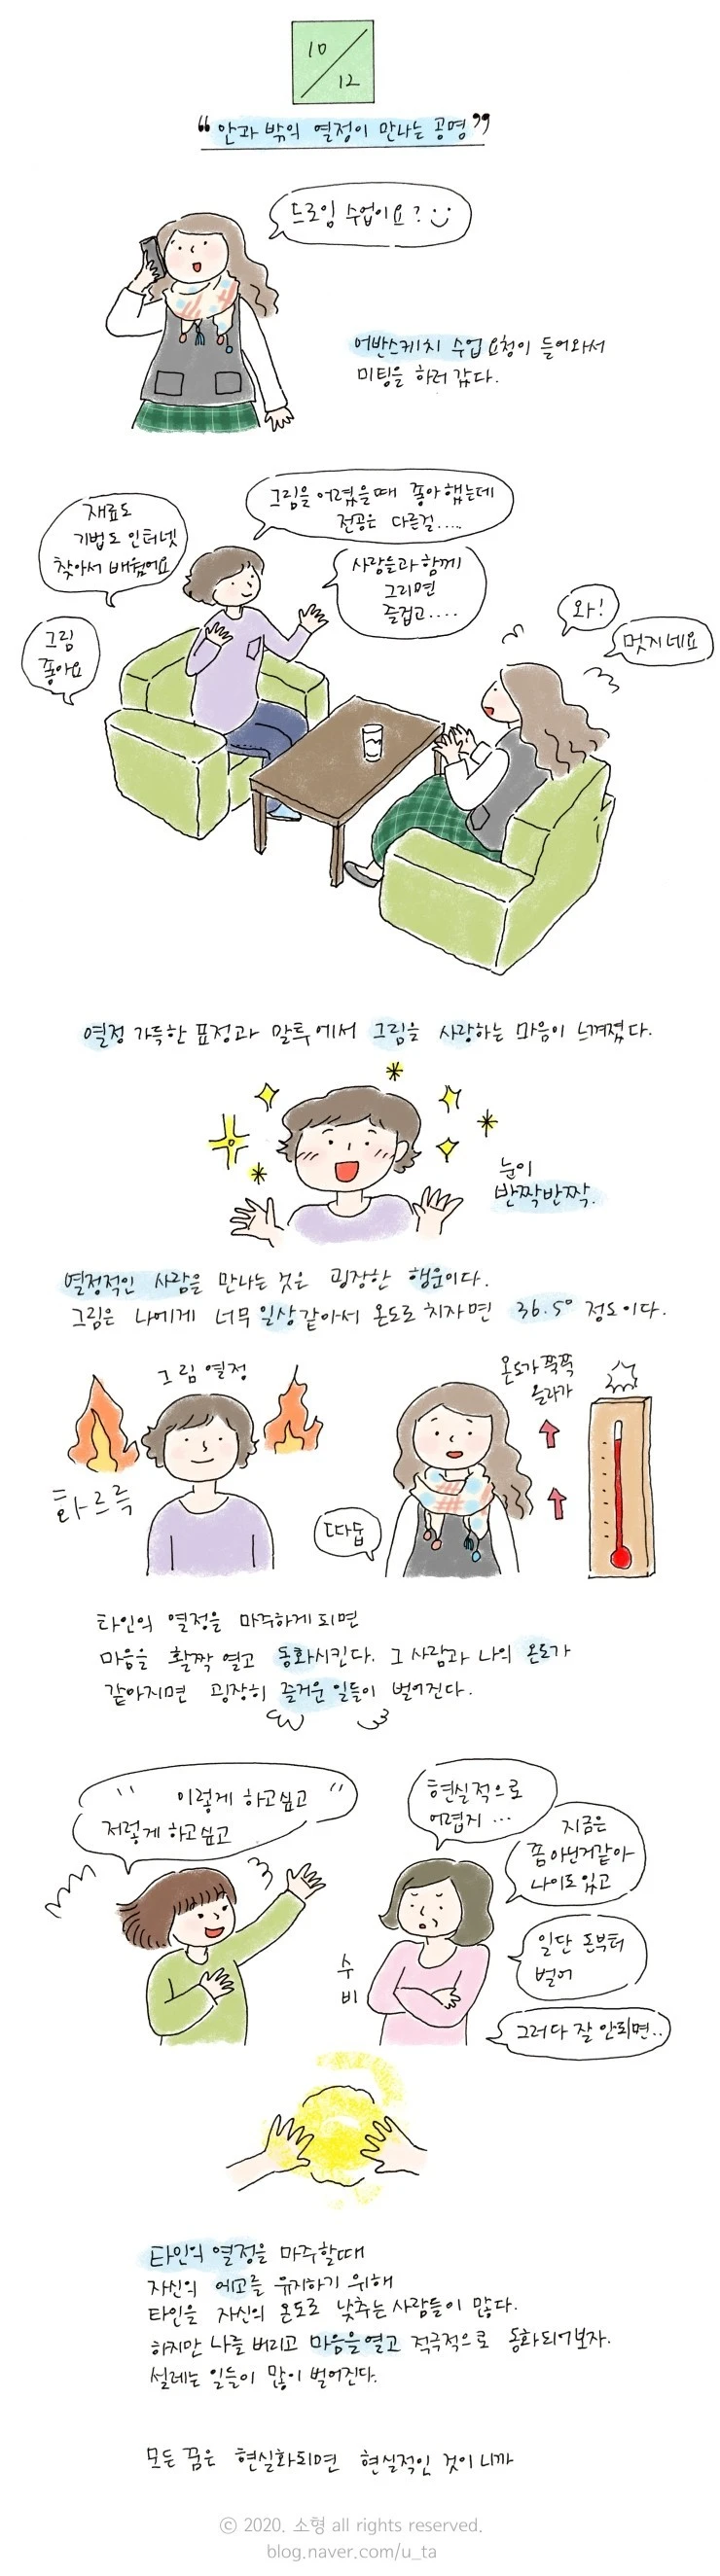 10
12
"안과 밖의 열정이 만나는 공명"
드로잉 수업이요?
어반스케치 수업 요청이 들어와서
미팅을 하러 갔다.
그림을 어렸을때 좋아했는데
전공은 다른걸.....
재료도
기법도 인터넷
찾아서 배웠어요
사람들과 함께
그리면
즐겁고....
그림
좋아요
와!
멋지네요
열정 가득한 표정과 말투에서 그림을 사랑하는 마음이 느껴졌다.
눈이
반짝반짝.
열정적인 사람을 만나는 것은 굉장한 행운이다.
그림은 나에게 너무 일상같아서 온도로 치자면 36.5° 정도이다.
그림 열정
화르륵
온도가 쭉쭉
올라가
따둡
타인의 열정을 마주하게 되면
마음을 활짝 열고 동화시킨다. 그 사람과 나의 온도가
같아지면 굉장히 즐거운 일들이 벌어진다.
이렇게 하고싶고
저렇게 하고싶고
현실적으로
어렵지 ...
지금은
좀 아닌거같아
나이도 있고
수
비
일단 돈부터
벌어
그러다 잘 안되면..
타인의 열정을 마주할때
자신의 에고를 유지하기 위해
타인을 자신의 온도로 낮추는 사람들이 많다.
하지만 나를 버리고 마음을 열고 적극적으로 동화되어보자.
설레는 일들이 많이 벌어진다.
모든 꿈은 현실화되면 현실적인 것이니까
© 2020. 소형 all rights reserved.
blog.naver.com/u_ta